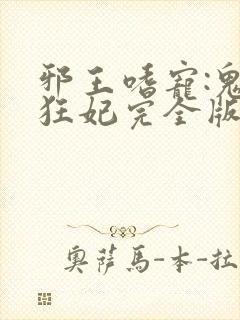 邪王嗜寵:鬼
狂妃完全版
奧薩馬-本-拉